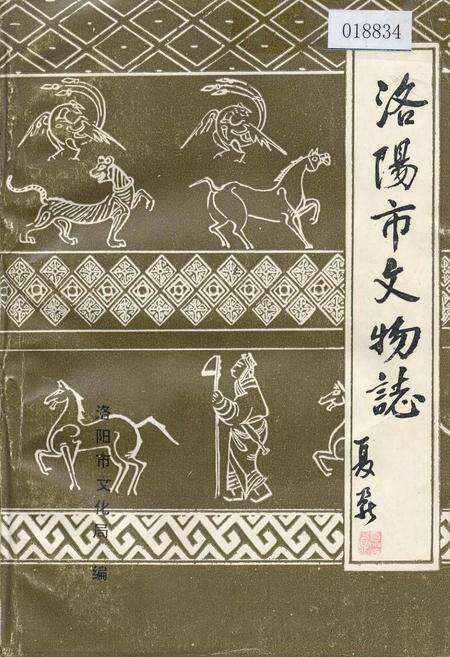 018834
洛陽市文物誌
夏鼐
洛阳市文化局 编